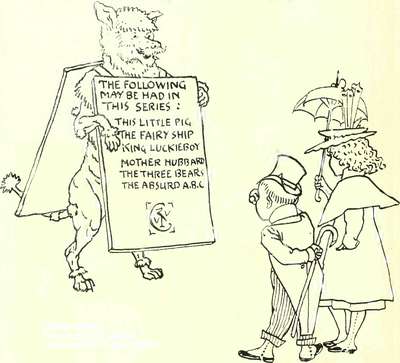 THE FOLLOWING
MAY BE HAD IN
THIS SERIES:
THIS LITTLE PIG
THE FAIRY SHIP
KING LUCKIEBOY
MOTHER HUBBARD
THE THREE BEARS
THE ABSURD A.B.C